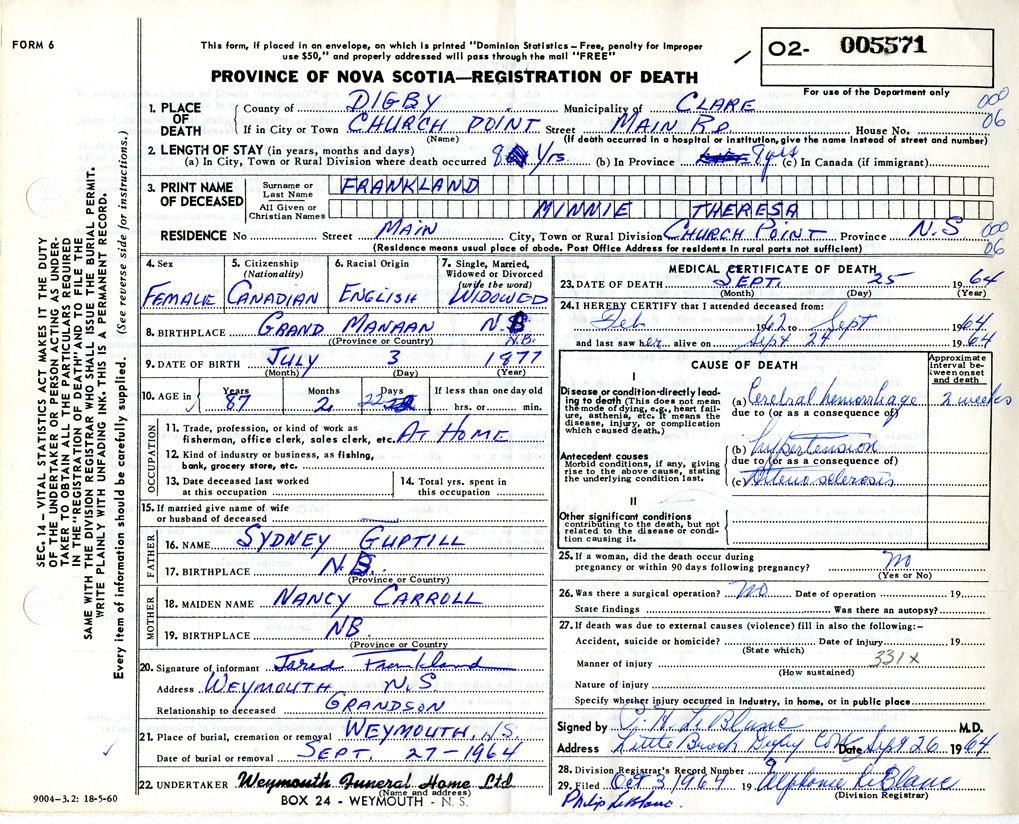 FORM 6
This form, if placed in an envelope, on which is printed "Dominion Statistics – Free, penalty for improper
use $50," and properly addressed will pass through the mail "FREE"
PROVINCE OF NOVA SCOTIA—REGISTRATION OF DEATH
02- 005571
For use of the Department only
SEC. 14 – VITAL STATISTICS ACT MAKES IT THE DUTY
OF THE UNDERTAKER OR PERSON ACTING AS UNDER-
TAKER TO OBTAIN ALL THE PARTICULARS REQUIRED
IN THE "REGISTRATION OF DEATH" AND TO FILE THE
SAME WITH THE DIVISION REGISTRAR WHO SHALL ISSUE THE BURIAL PERMIT.
WRITE PLAINLY WITH UNFADING INK. THIS IS A PERMANENT RECORD.
Every item of information should be carefully supplied. (See reverse side for instructions.)
1. PLACE OF DEATH County of DIGBY Municipality of CLARE 000
06
If in City or Town CHURCH POINT Street MAIN RD. House No.
(Name) (If death occurred in a hospital or institution, give the name instead of street and number)
2. LENGTH OF STAY (in years, months and days)
(a) In City, Town or Rural Division where death occurred 8 Yrs. (b) In Province 9 yrs (c) In Canada (if immigrant)
3. PRINT NAME OF DECEASED Surname or Last Name FRANKLAND
All Given or Christian Names MINNIE THERESA
RESIDENCE No Street MAIN City, Town or Rural Division CHURCH POINT Province N.S 000
06
(Residence means usual place of abode. Post Office Address for residents in rural parts not sufficient)
4. Sex FEMALE
5. Citizenship (Nationality) CANADIAN
6. Racial Origin ENGLISH
7. Single, Married, Widowed or Divorced (write the word) WIDOWED
8. BIRTHPLACE GRAND MANAAN N.B
(Province or Country) N.B.
9. DATE OF BIRTH JULY 3 1977
(Month) (Day) (Year)
10. AGE in Years 87 Months 2 Days 22 If less than one day old hrs. or min.
OCCUPATION
11. Trade, profession, or kind of work as
fisherman, office clerk, sales clerk, etc. AT HOME
12. Kind of industry or business, as fishing,
bank, grocery store, etc.
13. Date deceased last worked
at this occupation
14. Total yrs. spent in
this occupation
15. If married give name of wife
or husband of deceased
FATHER
16. NAME SYDNEY GUPTILL
17. BIRTHPLACE N.B.
(Province or Country)
MOTHER
18. MAIDEN NAME NANCY CARROLL
19. BIRTHPLACE NB.
(Province or Country
20. Signature of informant Jared Frankland
Address WEYMOUTH N.S.
Relationship to deceased GRANDSON
21. Place of burial, cremation or removal WEYMOUTH, N.S.
Date of burial or removal SEPT. 27-1964
22. UNDERTAKER Weymouth Funeral Home Ltd
(Name and address)
BOX 24 - WEYMOUTH - N. S.
9004-3.2: 18-5-60
MEDICAL CERTIFICATE OF DEATH
23. DATE OF DEATH SEPT. 25 1964
(Month) (Day) (Year)
24. I HEREBY CERTIFY that I attended deceased from:
Feb 1962 to Sept 1964
and last saw her alive on Sept 24 1964
CAUSE OF DEATH
Approximate interval between onset and death
I
Disease or condition directly lead-
ing to death (This does not mean
the mode of dying, e.g., heart fail-
ure, asthenia, etc. It means the
disease, injury, or complication
which caused death.)
(a) Cerebral hemorrhage 2 weeks
due to (or as a consequence of)
Antecedent causes
Morbid conditions, if any, giving
rise to the above cause, stating
the underlying condition last.
(b) hypertension
due to (or as a consequence of)
(c) Arteriosclerosis
II
Other significant conditions
contributing to the death, but not
related to the disease or condi-
tion causing it.
25. If a woman, did the death occur during
pregnancy or within 90 days following pregnancy? no
(Yes or No)
26. Was there a surgical operation? no Date of operation 19
State findings Was there an autopsy?
27. If death was due to external causes (violence) fill in also the following:–
Accident, suicide or homicide? Date of injury 19
(State which)
331x
Manner of injury
(How sustained)
Nature of injury
Specify whether injury occurred in Industry, in home, or in public place
Signed by C. H. LeBlanc M.D.
Address Little Brook Digby Co Date Sept 26 1964
28. Division Registrar's Record Number 9
29. Filed Oct 3 1964 19 Alphonie LeBlanc
(Division Registrar)
Philip LeBlanc.